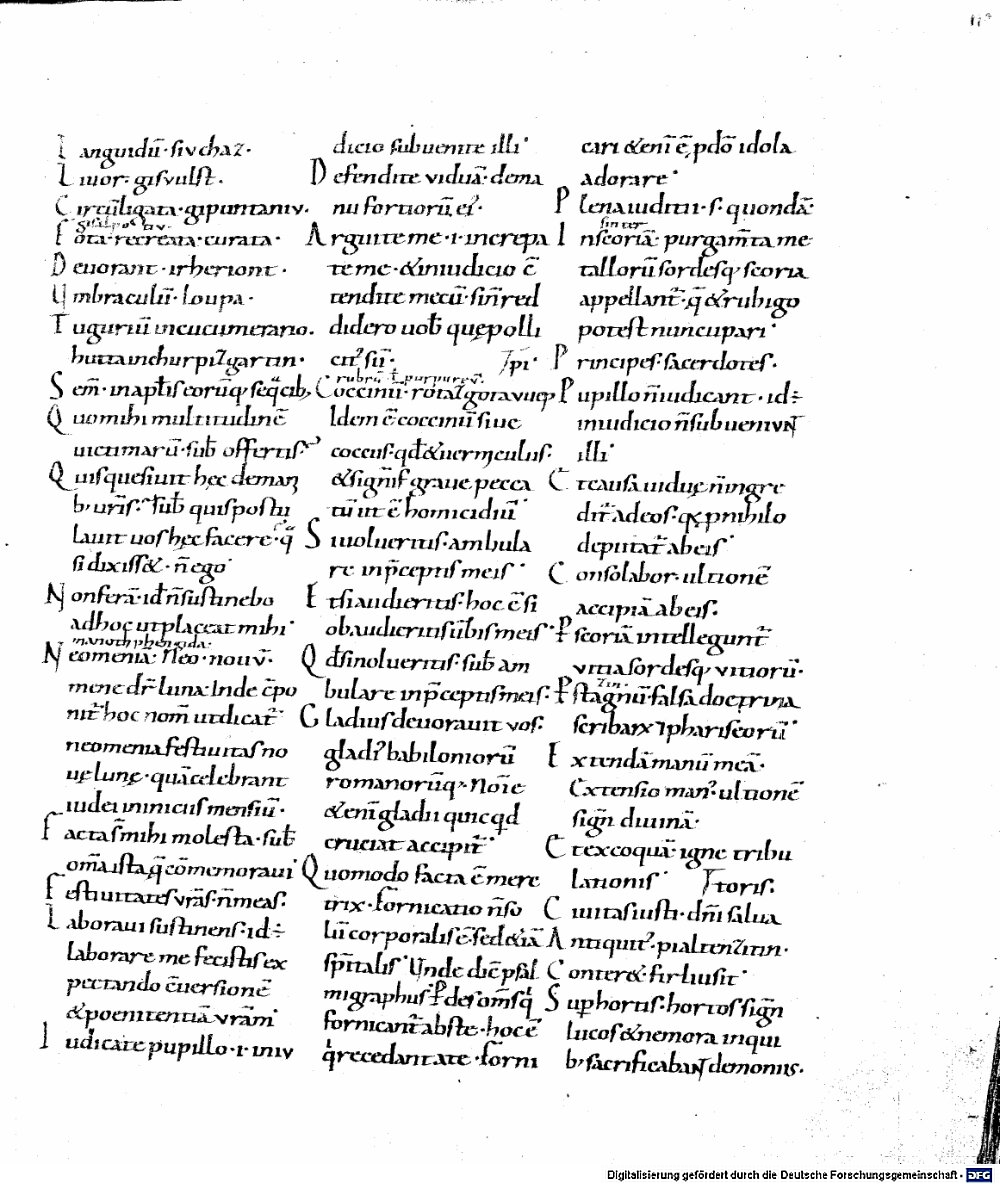 Languidū· siuchaz·
Liuor· gisvulst·
Circūligata· gipuntaniu·
Fota· recreata· curata·
Deuorant· irheriont·
Umbraculū· loupa·
Tuguriū in cucumerario·
hutta in churpizgartin·
Quo mihi multitudinē
uictimarū· sub offertis·
Quis quesiuit hęc de man
lauit uos hęc facere· q̄
si dixiss&· n̄ ego·
Non ferā· id· n̄ sustinebo
adhoc ut placeat mihi·
Neomenia· Neo· nouū·
mene dr̄ luna· Inde cō̄po
nit̄ hoc nom̄ ut dicat̄
neomenia festiuitas no
uę lunę· quā celebrant
iudei in inicus mensiū·
Facta s̄ mihi molesta· sub
om̄a ista q̄ cō̄memoraui·
Festiuitates vr̄as· n̄ meas·
Laboraui sustinens· id·÷
laborare me fecistis ex
pectando cū̄ersionē
& poenitentiā vrām·
Iudicate pupillo· i· iniu
dicio subuenite illi·
Defendite viduā· dema
nu fortiorū ei·
Arguite me· i· increpa
te me· & in iudicio cō̄
tendite mecū· si n̄ red
didero uob quę polli
cit sū·
rubrū ł purpureū·
Idem ē coccinū siue
coccus· qd & uermculus·
& signif graue pecca
tū ut ē homicidiū·
Si uolueritis· ambula
re in p̄ceptis meis·
Etsi audieritis· hoc ē si
obaudieritis ūbis meis·
Qd si nolueritis· sub am
bulare in p̄ceptis meis·
Gladius deuorauit vos·
gladi babiloniorū
romanorūq· Noīe
& enī gladii quicqd
cruciat accipit̄·
Quomodo facta ē mere
trix· fornicatio n̄ so
lū corporalis ē· sed & iā
sp̄italis· Unde dic̄ psal
fornicant̄ abs te· hoc ē
q recedant a te· forni
cari & enī ē, p dō idola
adorare·
Plena iuditii· s· quondā·
In scoriā· purgam̄ta me
tallorū sordesq scoria
appellant̄· q̄ & rubigo
potest nuncupari·
Principes· sacerdotes·
Pupillo n̄ iudicant· id·÷
in iudicio n̄ subueniunt
illi·
Et causa uiduę n̄ ingre
dit̄ ad eos· q p nihilo
deputat̄ ab eis·
Consolabor· ultionē
accipiā ab eis·
P scoriā intellegunt̄
vitia sordesq vitiorū·
P stagnū· falsa doctrina
scribarx 7 phariseorū·
Extendā manū meā·
Extensio man· ultionē
sign diuinā·
Et excoquā· igne tribu
lationis·
Ciuitas iusti· dn̄i salua
7toris·
Antiquit· pialtenzitin·
Conter&· firliusit·
Sup hortis· hortos sign
lucos & nemora in qui
b; sacrificabant demoniis·
Digitalisierung gefördert durch die Deutsche Forschungsgemeinschaft - DFG